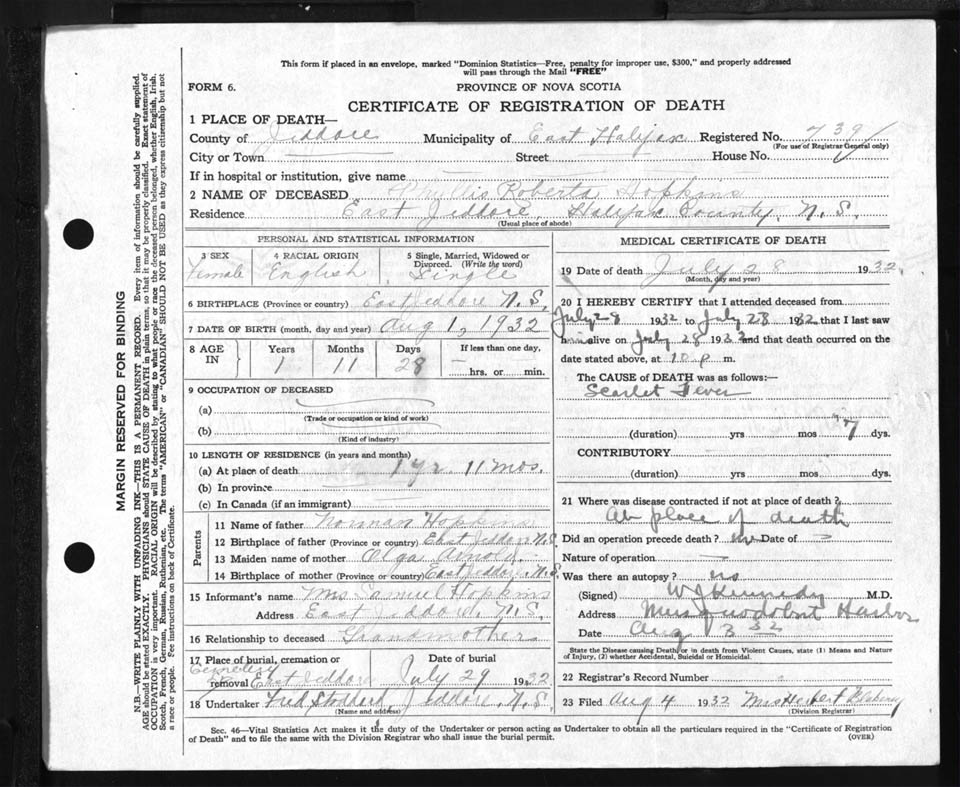 This form if placed in an envelope, marked "Dominion Statistics—Free, penalty for improper use, $300," and properly addressed
will pass through the Mail "FREE"
FORM 6.
PROVINCE OF NOVA SCOTIA
CERTIFICATE OF REGISTRATION OF DEATH
1 PLACE OF DEATH—
County of Jeddore Municipality of East Halifax Registered No. 7391
(For use of Registrar General only)
City or Town Street House No.
If in hospital or institution, give name
2 NAME OF DECEASED Phyllis Roberta Hopkins
Residence East Jeddore, Halifax County, N.S.
(Usual place of abode)
PERSONAL AND STATISTICAL INFORMATION
3 SEX 4 RACIAL ORIGIN 5 Single, Married, Widowed or
Divorced. (Write the word)
Female English Single
6 BIRTHPLACE (Province or country) East Jeddore N.S.
7 DATE OF BIRTH (month, day and year) Aug 1, 1932
8 AGE IN Years Months Days If less than one day,
1 11 28 — —
hrs. or min.
9 OCCUPATION OF DECEASED
(a)
(Trade or occupation or kind of work)
(b)
(Kind of industry)
10 LENGTH OF RESIDENCE (in years and months)
(a) At place of death 1 yr. 11 mos.
(b) In province
(c) In Canada (if an immigrant)
Parents
11 Name of father Norman Hopkins
12 Birthplace of father (Province or country) East Jeddore N.S.
13 Maiden name of mother Olga Arnold
14 Birthplace of mother (Province or country) East Jeddore N.S.
15 Informant's name Mrs Samuel Hopkins
Address East Jeddore, N.S.
16 Relationship to deceased Grandmother
17 Place of burial, cremation or Date of burial
Cemetery
removal East Jeddore July 29 1932
18 Undertaker Fred Stoddard, Jeddore, N.S.
(Name and address)
MEDICAL CERTIFICATE OF DEATH
19 Date of death July 28 1932
(Month, day and year)
20 I HEREBY CERTIFY that I attended deceased from
July 28 1932 to July 28 1932 that I last saw
alive on July 28 1932 and that death occurred on the
date stated above, at 10 p m.
The CAUSE OF DEATH was as follows:—
Scarlet Fever
(duration) yrs mos 7 dys.
CONTRIBUTORY
(duration) yrs mos dys.
21 Where was disease contracted if not at place of death?
At place of death
Did an operation precede death? no Date of —
Nature of operation —
Was there an autopsy? no
(Signed) W J Kennedy M.D.
Address Musquodoboit Harbor
Date Aug 3 32
State the Disease causing Death, or in death from Violent Causes, state (1) Means and Nature
of Injury, (2) whether Accidental, Suicidal or Homicidal.
22 Registrar's Record Number
23 Filed Aug 4 1932 Mrs Herbert
(Division Registrar)
Sec. 46—Vital Statistics Act makes it the duty of the Undertaker or person acting as Undertaker to obtain all the particulars required in the "Certificate of Registration
of Death" and to file the same with the Division Registrar who shall issue the burial permit. (OVER)
MARGIN RESERVED FOR BINDING
N.B.—WRITE PLAINLY WITH UNFADING INK—THIS IS A PERMANENT RECORD. Every item of information should be carefully supplied.
AGE should be stated EXACTLY. PHYSICIANS should STATE CAUSE OF DEATH in plain terms, so that it may be properly classified. Exact statement of
OCCUPATION is very important. RACIAL ORIGIN will be described by stating to what people or race the deceased person belonged, whether English, Irish,
Scotch, French, German, Russian, Ruthenian, etc. The terms "AMERICAN" or "CANADIAN" SHOULD NOT BE USED as they express citizenship but not
a race or people. Fee instructions on back of Certificate.